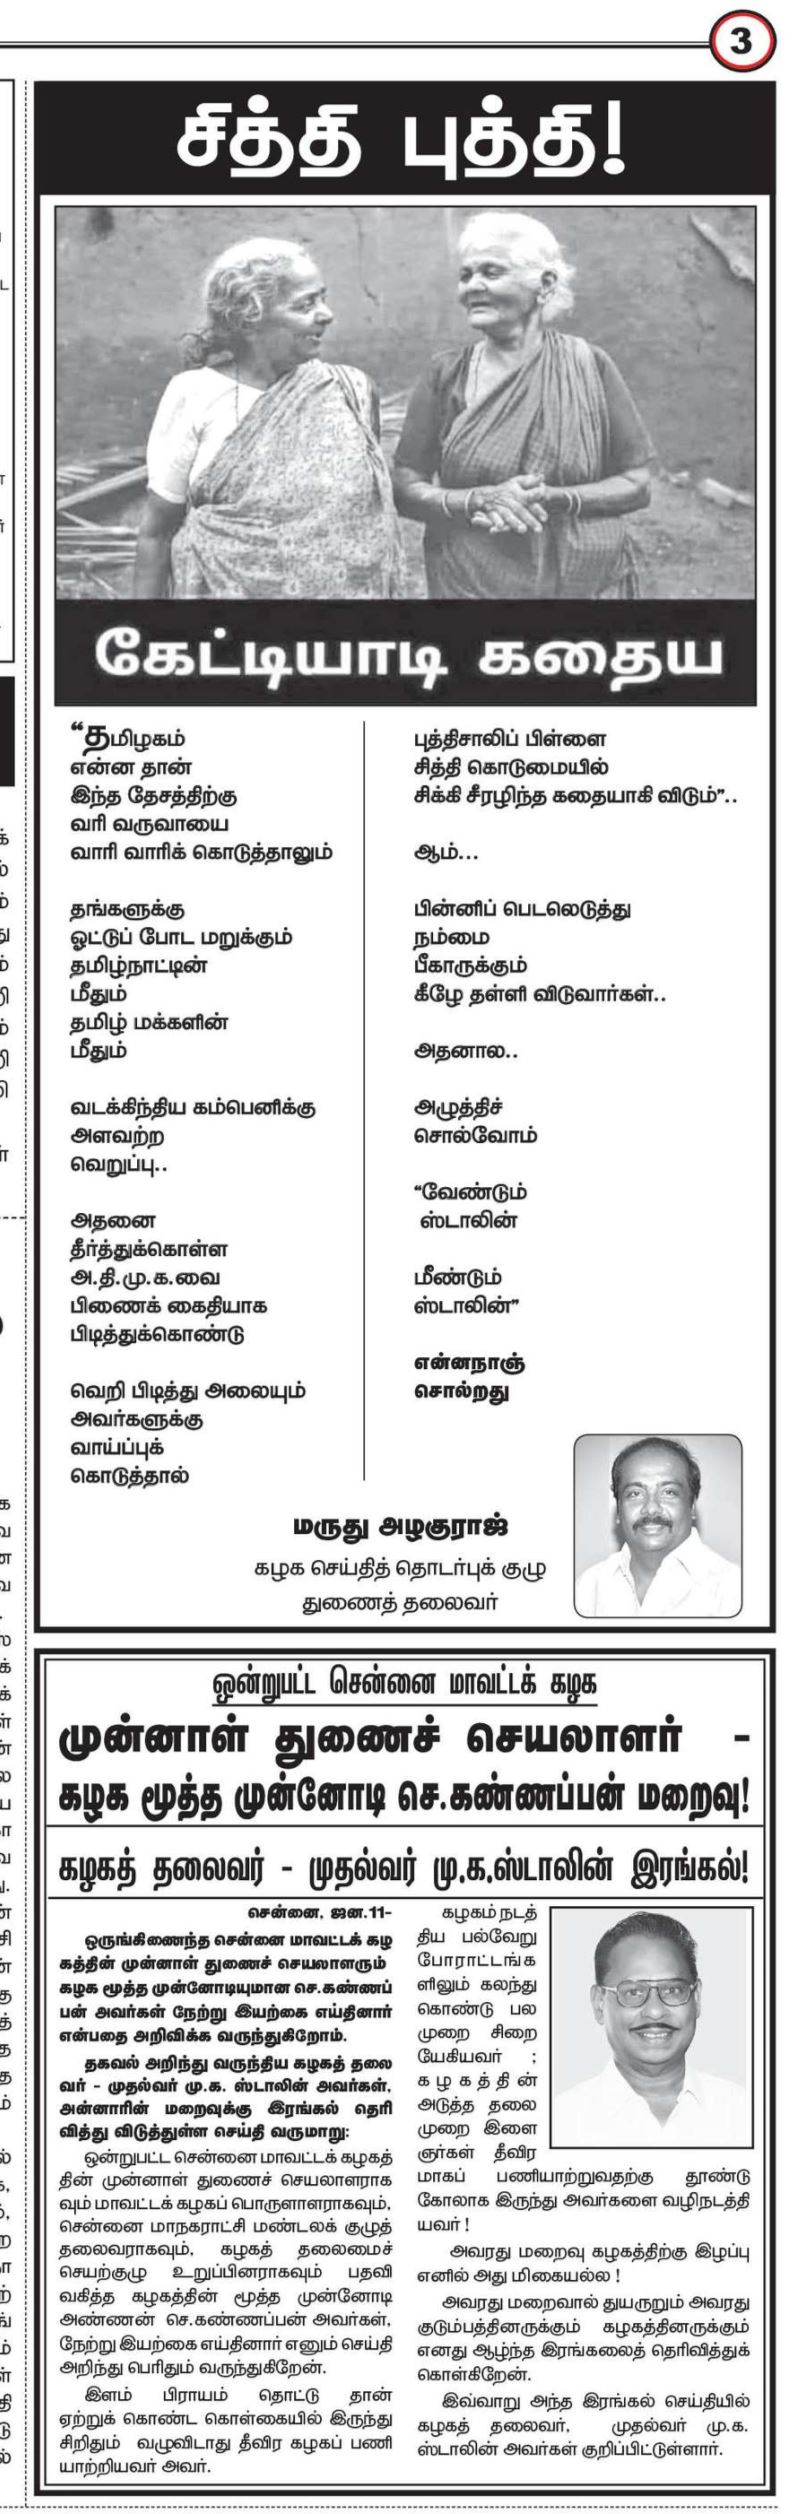 3
சித்தி புத்தி!
கேட்டியாடி கதைய
“தமிழகம்
என்ன தான்
இந்த தேசத்திற்கு
வரி வருவாயை
வாரி வாரிக் கொடுத்தாலும்
தங்களுக்கு
ஓட்டுப் போட மறுக்கும்
தமிழ்நாட்டின்
மீதும்
தமிழ் மக்களின்
மீதும்
வடக்கிந்திய கம்பெனிக்கு
அளவற்ற
வெறுப்பு..
அதனை
தீர்த்துக்கொள்ள
அ.தி.மு.க.வை
பிணைக் கைதியாக
பிடித்துக்கொண்டு
வெறி பிடித்து அலையும்
அவர்களுக்கு
வாய்ப்புக்
கொடுத்தால்
புத்திசாலிப் பிள்ளை
சித்தி கொடுமையில்
சிக்கி சீரழிந்த கதையாகி விடும்”..
ஆம்...
பின்னிப் பெடலெடுத்து
நம்மை
பீகாருக்கும்
கீழே தள்ளி விடுவார்கள்..
அதனால..
அழுத்திச்
சொல்வோம்
“வேண்டும்
ஸ்டாலின்
மீண்டும்
ஸ்டாலின்”
என்னநாஞ்
சொல்றது
மருது அழகுராஜ்
கழக செய்தித் தொடர்புக் குழு
துணைத் தலைவர்
ஒன்றுபட்ட சென்னை மாவட்டக் கழக
முன்னாள் துணைச் செயலாளர் -
கழக மூத்த முன்னோடி செ.கண்ணப்பன் மறைவு!
கழகத் தலைவர் - முதல்வர் மு.க.ஸ்டாலின் இரங்கல்!
சென்னை, ஜன.11-
ஒருங்கிணைந்த சென்னை மாவட்டக் கழ
கத்தின் முன்னாள் துணைச் செயலாளரும்
கழக மூத்த முன்னோடியுமான செ.கண்ணப்
பன் அவர்கள் நேற்று இயற்கை எய்தினார்
என்பதை அறிவிக்க வருந்துகிறோம்.
தகவல் அறிந்து வருந்திய கழகத் தலை
வர் - முதல்வர் மு.க. ஸ்டாலின் அவர்கள்,
அன்னாரின் மறைவுக்கு இரங்கல் தெரி
வித்து விடுத்துள்ள செய்தி வருமாறு:
ஒன்றுபட்ட சென்னை மாவட்டக் கழகத்
தின் முன்னாள் துணைச் செயலாளராக
வும் மாவட்டக் கழகப் பொருளாளராகவும்,
சென்னை மாநகராட்சி மண்டலக் குழுத்
தலைவராகவும், கழகத் தலைமைச்
செயற்குழு உறுப்பினராகவும் பதவி
வகித்த கழகத்தின் மூத்த முன்னோடி
அண்ணன் செ.கண்ணப்பன் அவர்கள்,
நேற்று இயற்கை எய்தினார் எனும் செய்தி
அறிந்து பெரிதும் வருந்துகிறேன்.
இளம் பிராயம் தொட்டு தான்
ஏற்றுக் கொண்ட கொள்கையில் இருந்து
சிறிதும் வழுவிடாது தீவிர கழகப் பணி
யாற்றியவர் அவர்.
கழகம் நடத்
திய பல்வேறு
போராட்டங்க
ளிலும் கலந்து
கொண்டு பல
முறை சிறை
யேகியவர் ;
கழகத்தின்
அடுத்த தலை
முறை இளை
ஞர்கள் தீவிர
மாகப் பணியாற்றுவதற்கு தூண்டு
கோலாக இருந்து அவர்களை வழிநடத்தி
யவர் !
அவரது மறைவு கழகத்திற்கு இழப்பு
எனில் அது மிகையல்ல !
அவரது மறைவால் துயருறும் அவரது
குடும்பத்தினருக்கும் கழகத்தினருக்கும்
எனது ஆழ்ந்த இரங்கலைத் தெரிவித்துக்
கொள்கிறேன்.
இவ்வாறு அந்த இரங்கல் செய்தியில்
கழகத் தலைவர், முதல்வர் மு.க.
ஸ்டாலின் அவர்கள் குறிப்பிட்டுள்ளார்.